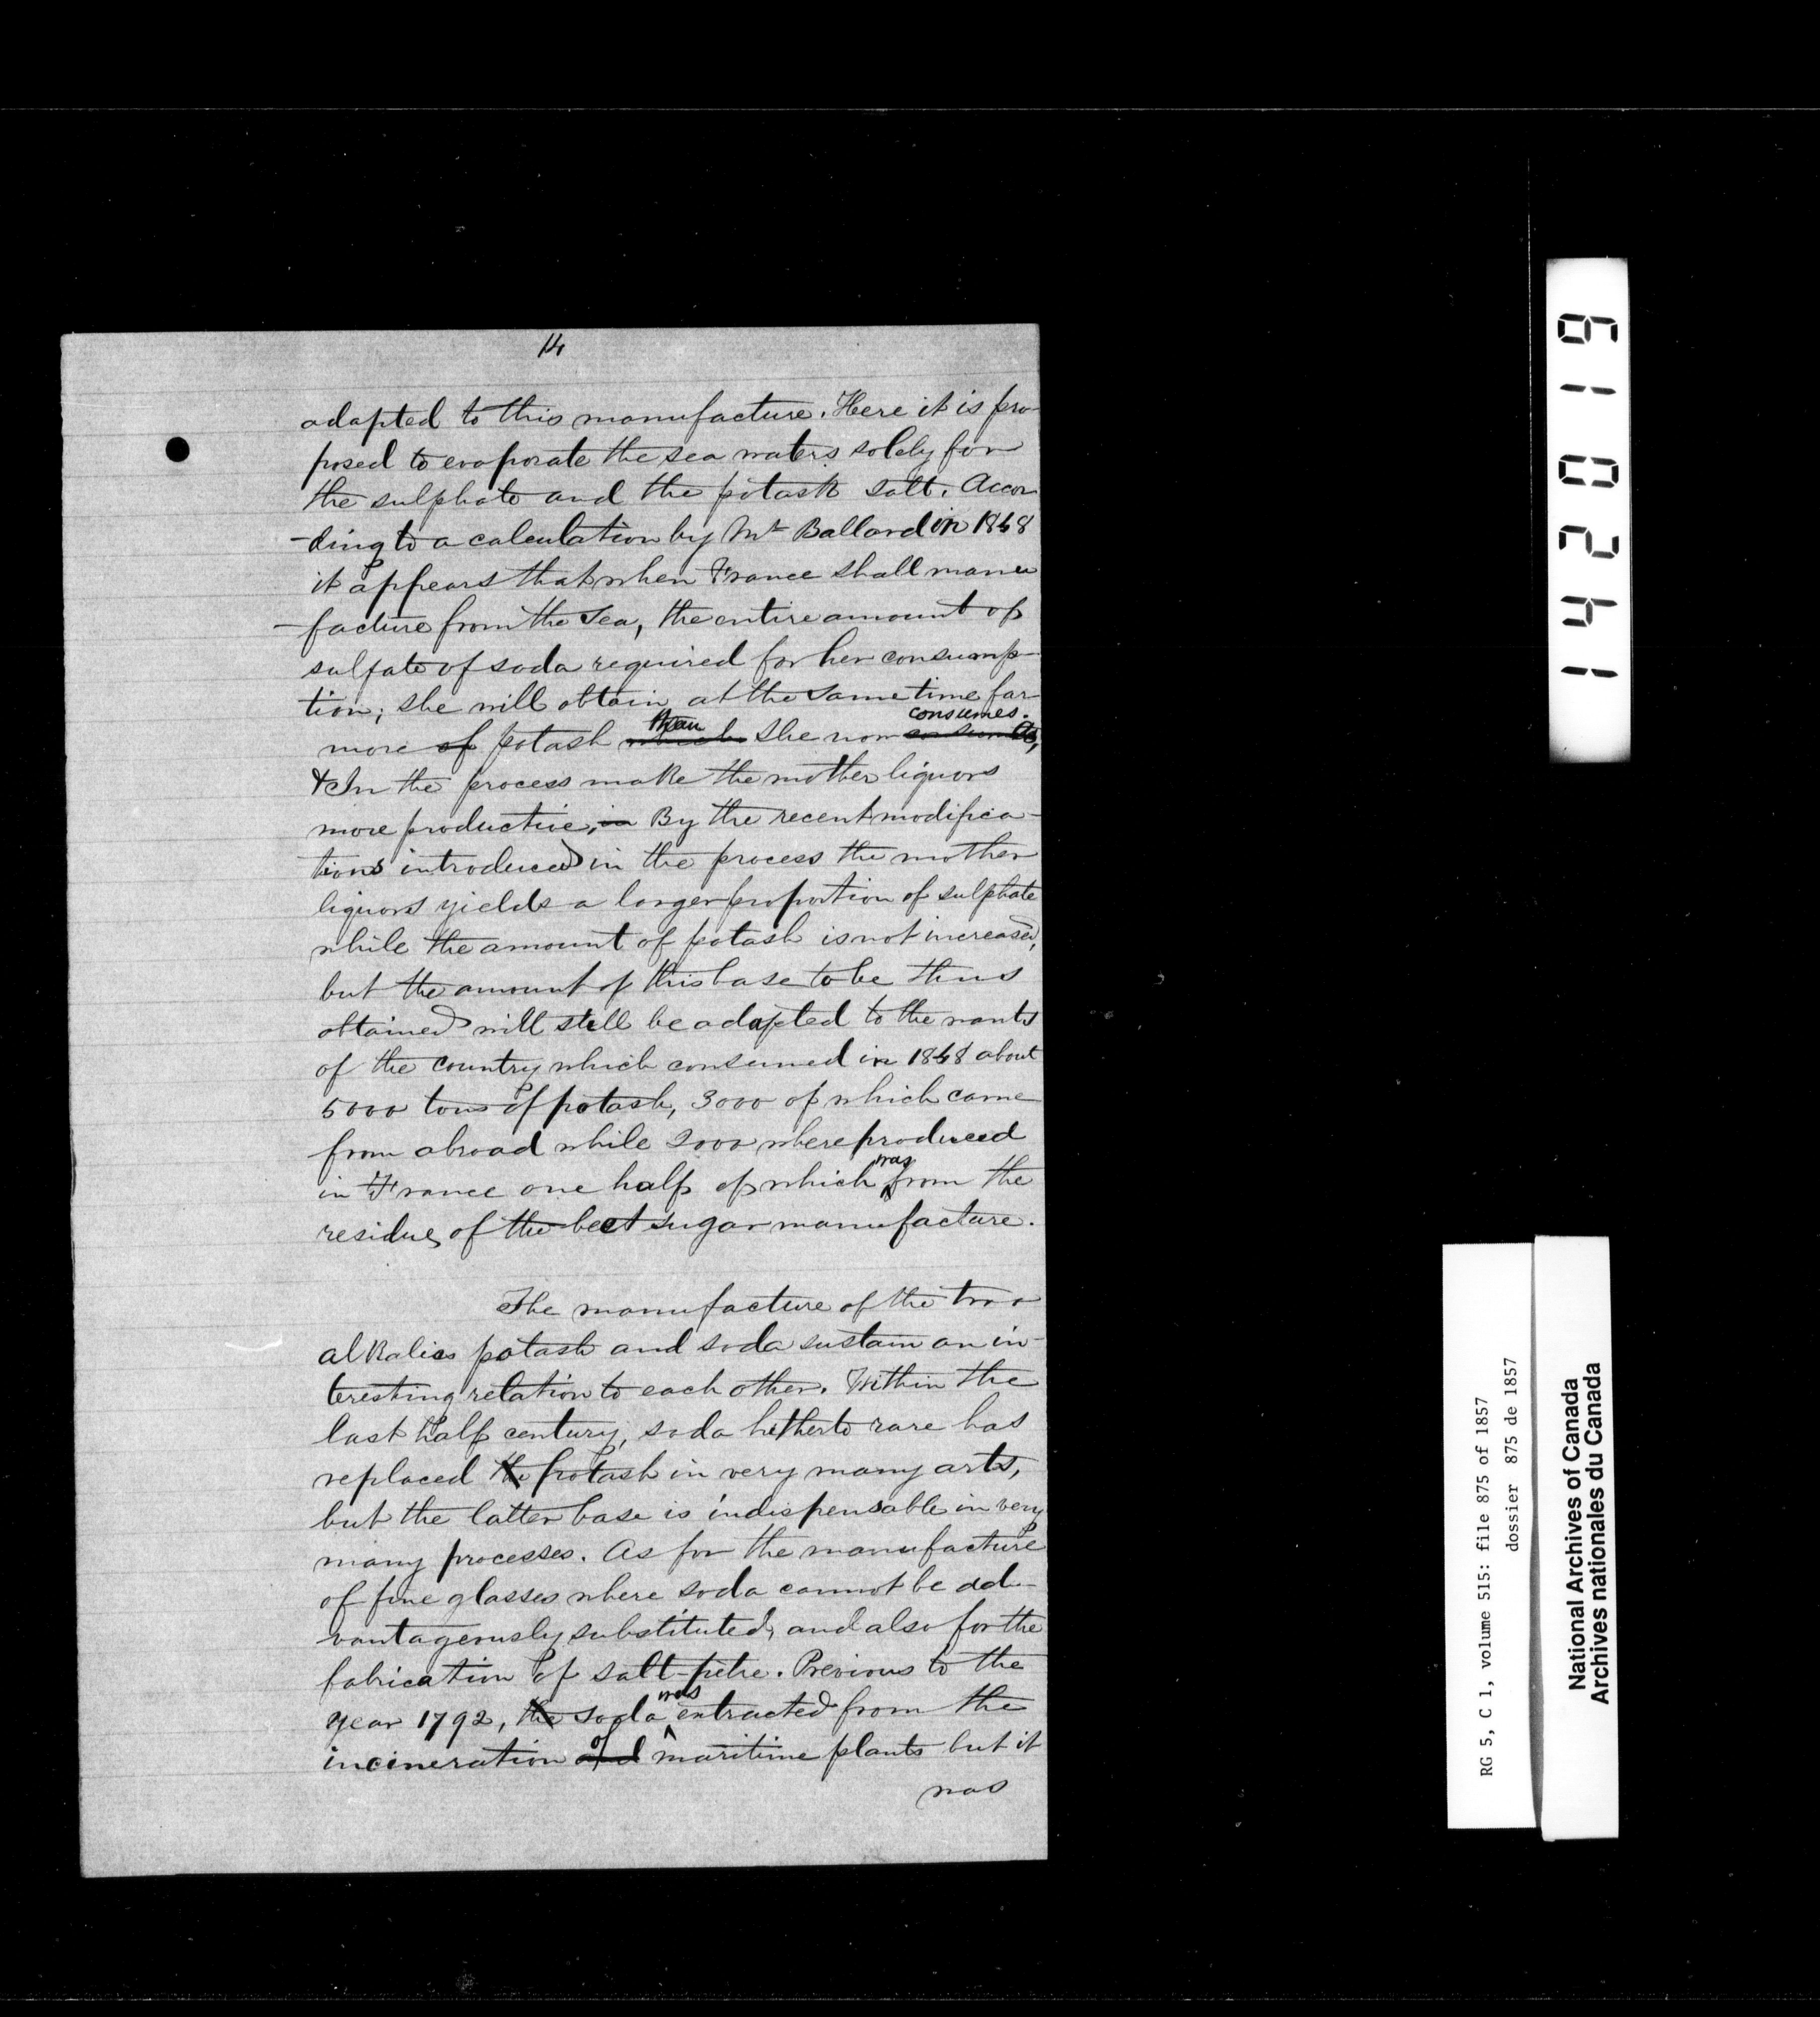 14
adapted to this manufacture. Here it is pro-
posed to evaporate the sea waters solely for
the sulphate and the potash salt. Accor
-ding to a calculation by Mr Ballard in 1848
it appears that when France shall manu
-facture from the sea, the entire amount of
sulfate of soda required for her consump-
tion; she will obtain at the same time far
than consumes.
more of potash which she now
& In the process make the mother liquors
more productive, in By the recent modifica-
tions introduced in the process the mother
liquors yields a larger proportion of sulphate
while the amount of potash is not increased,
but the amount of this base to be thus
obtained will still be adapted to the wants
of the country which consumed in 1848 about
5000 tons of potash, 3000 of which came
from abroad while 2000 where produced
was
in France one half of which from the
residue, of the beet sugar manufacture.
The manufacture of the two
alkalies potash and soda sustain an in-
teresting relation to each other. Within the
last half century, soda hitherto rare has
replaced the potash in very many arts,
but the latter base is indispensable in very
many processes. As for the manufacture
of fine glasses where soda cannot be ad-
vantageously substituted, and also for the
fabrication of salt-petre. Previous to the
was
year 1792, the soda extracted from the
of
incineration and maritime plants but it
was
142019
RG 5, C 1, volume 515: file 875 of 1857
dossier 875 de 1857
National Archives of Canada
Archives nationales du Canada